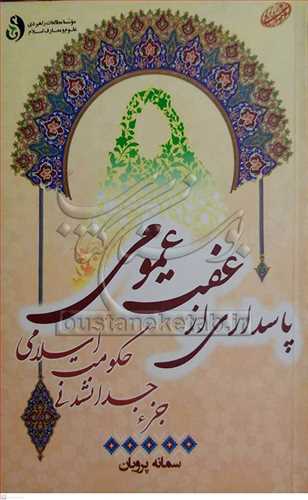 مؤسسه مطالعات راهبردی
علوم و معارف اسلام
پاسداری از عفت عمومی
جزء جدانشدنی حکومت اسلامی
bustaneketab.ir
سمانه پرویان